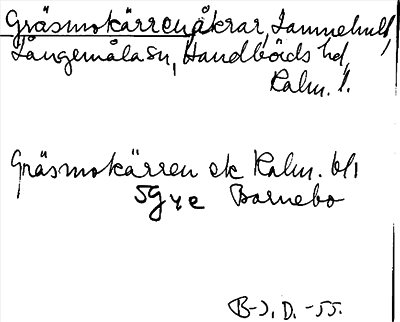 Gräsmokärren åkrar, Jammehult,
Långemåla sn, Handbörds hd,
Kalm. l.
Gräsmokärren ek Kalm. bl
5G y e Barnebo
B-J. D. -55.